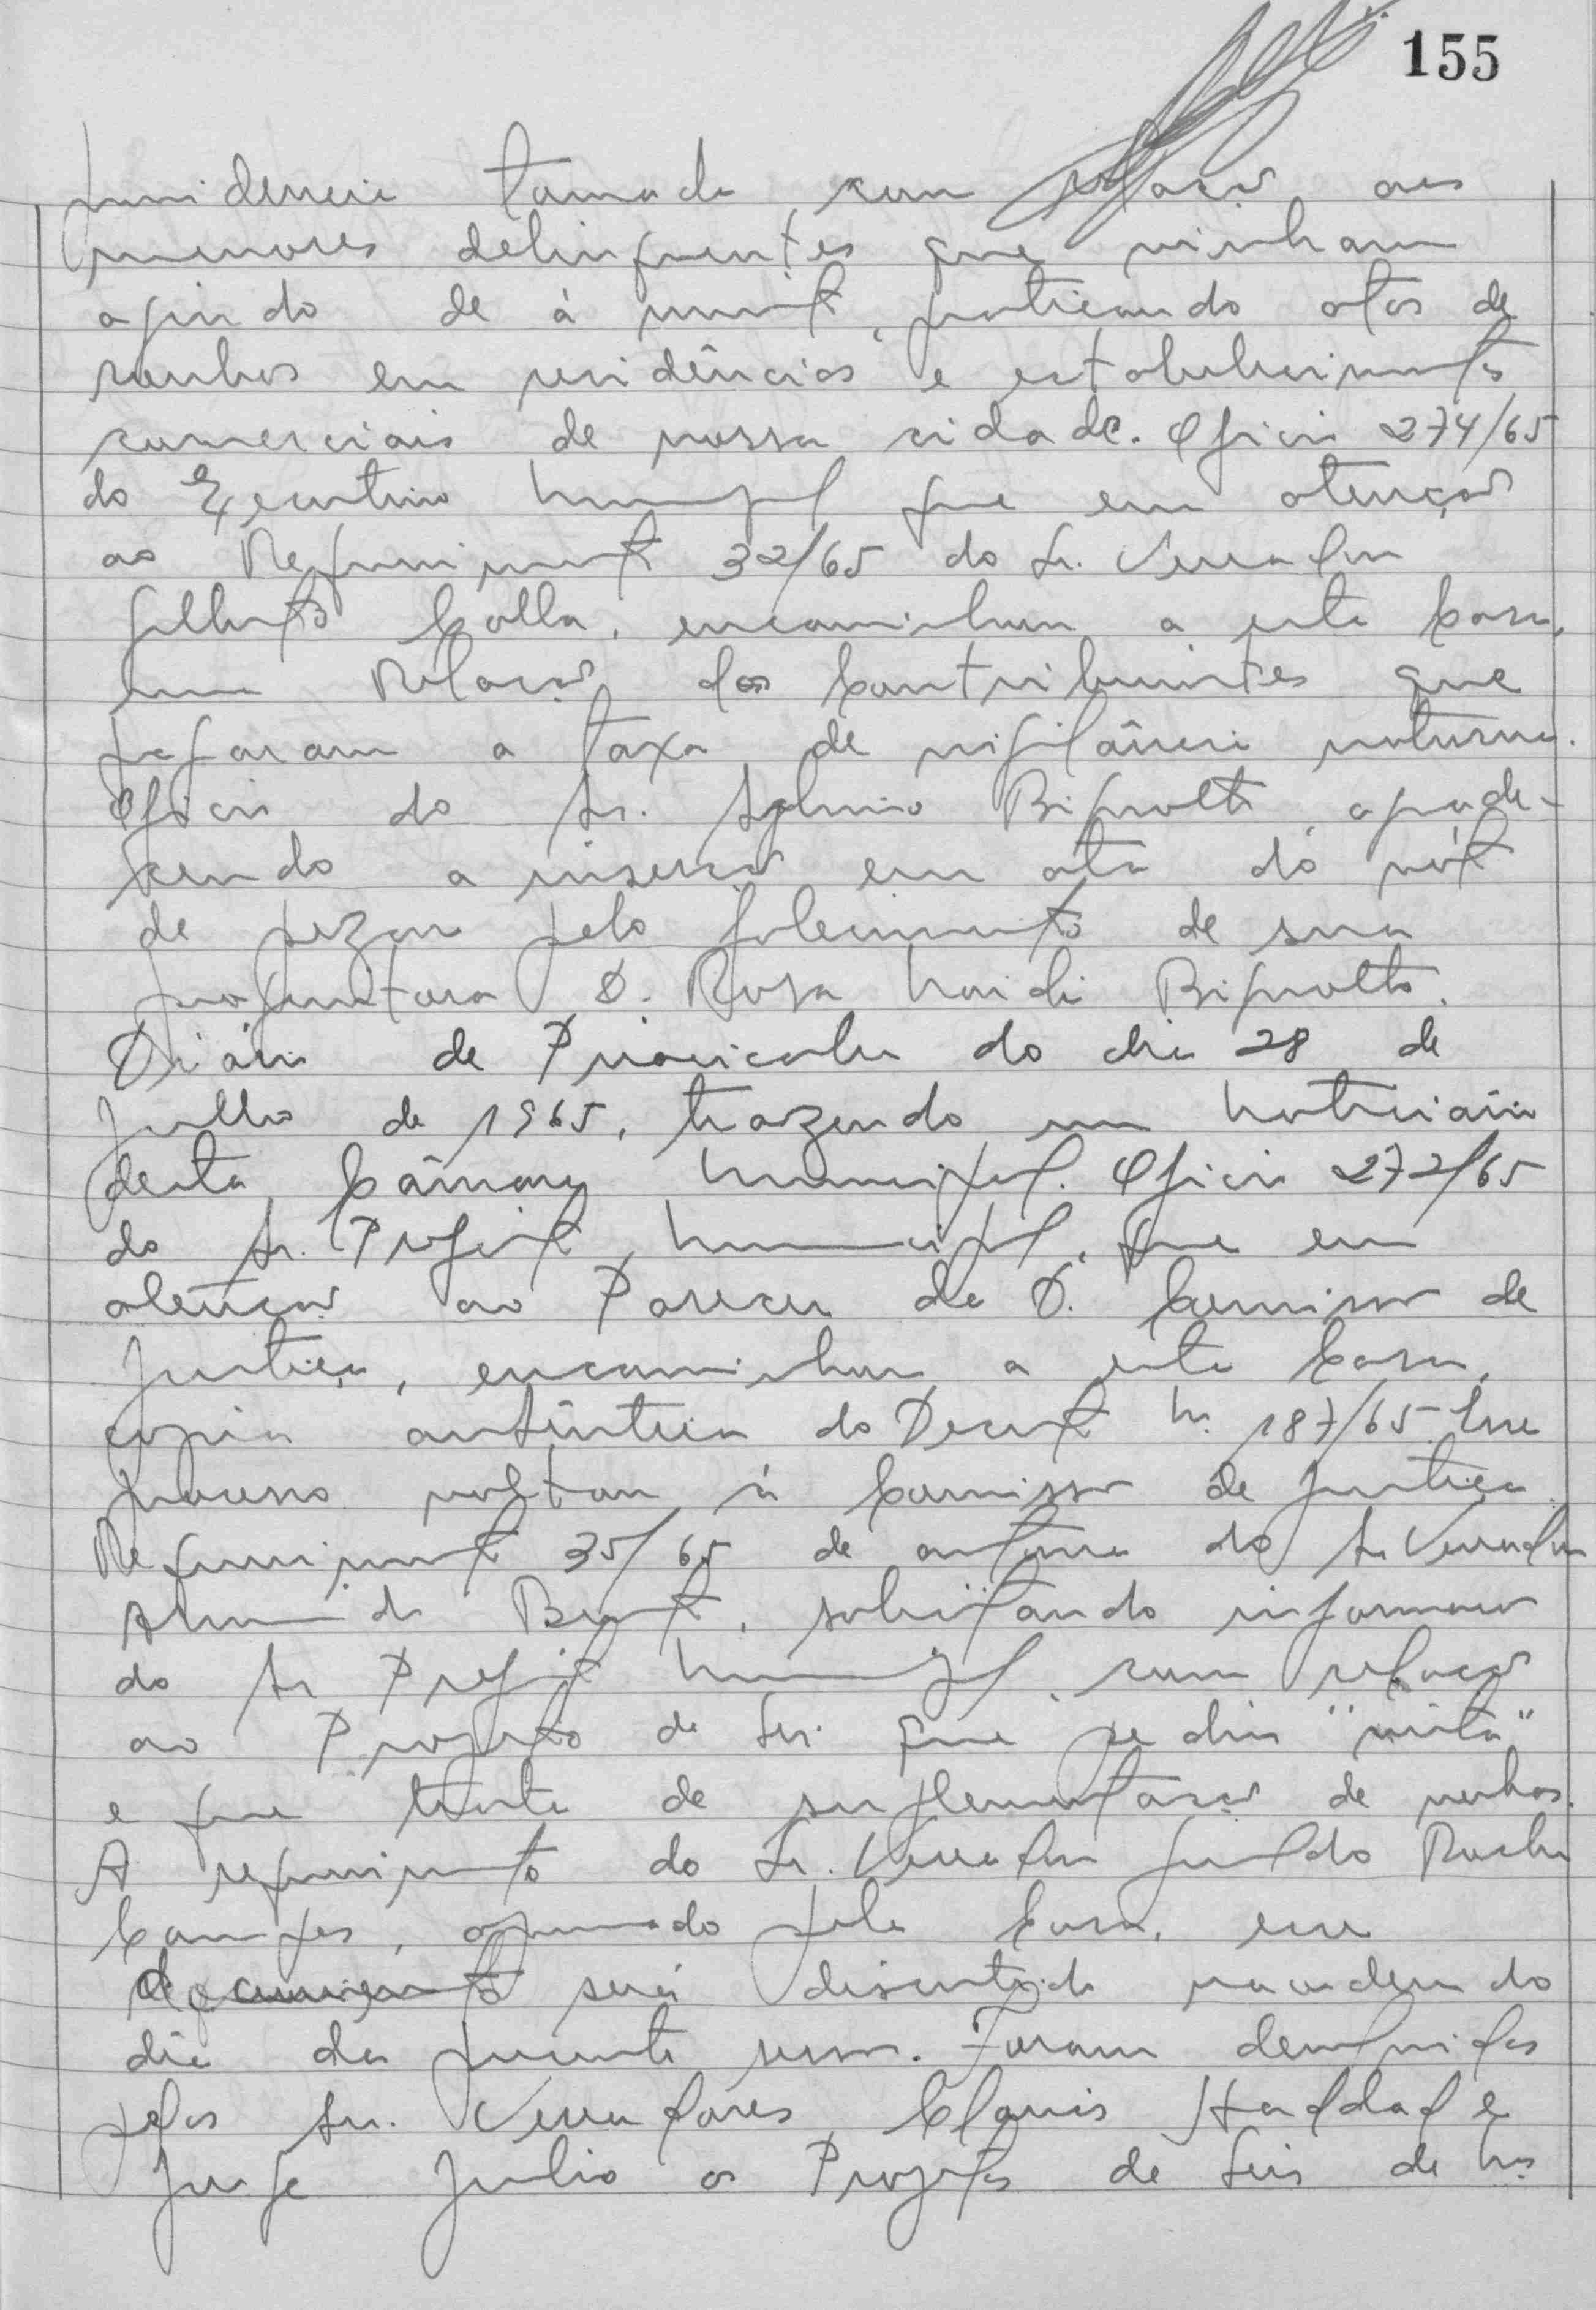 155
providencia tomada com relação aos
menores delinquentes que vinham
agindo de á muito, praticando atos de
roubos em residências e estabelecimentos
comerciais de nossa cidade. Oficio 274/65
do Executivo Municipal que em atenção
ao Requerimento 32/65 do Sr. Vereador
Gilberto Colla, encaminhou a esta Casa,
uma Relação dos Contribuintes que
pagaram a taxa de vigilância noturna.
Oficio do Sr. Bignotto, agrade-
cendo a inserção em ata do voto
de pezar pelo falecimento de sua
progenitora D. Rosa Bignotto.
Diário de Piracicaba do dia 28 de
Julho de 1965, trazendo um Noticiário
desta Câmara Municipal. Oficio 272/65
do Sr. Prefeito Municipal, que em
atenção ao Parecer da D. Comissão de
Justiça, encaminhou a esta Casa,
copia autêntica do Decreto Nº 187/65. Esse
processo voltou á Comissão de Justiça.
Requerimento 35/65 de autoria do Sr. Vereador
solicitando informação
do Sr. Prefeito Municipal, com relação
ao Projeto de Lei que pediu "vista"
e que trata de suplementação de verbas.
A requerimento do Sr. Vereador Geraldo Rocha
Campos, aprovado pela Casa, esse
documento será discutido na ordem do
dia da presente sessão. Foram devolvidos
pelos Srs. Vereadores Clovis Haddad e
Jorge Julio os Projetos de Leis de Nos